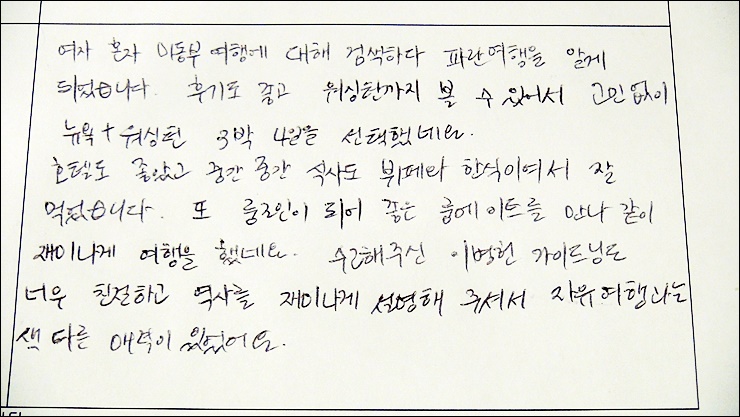 여자 혼자 미동부 여행에 대해 검색하다 파란여행을 알게
되었습니다. 후기도 좋고 워싱턴까지 볼 수 있어서 고민없이
뉴욕+워싱턴 3박 4일을 선택했네요.
호텔도 좋았고 중간 중간 식사도 뷔페와 한식이여서 잘
먹었습니다. 또 룸조인이 되어 좋은 룸메이트를 만나 같이
재미나게 여행을 했네요. 수고해주신 이병헌 가이드님도
너무 친절하고 역사를 재미나게 설명해 주셔서 자유여행과는
색다른 매력이 있었어요.